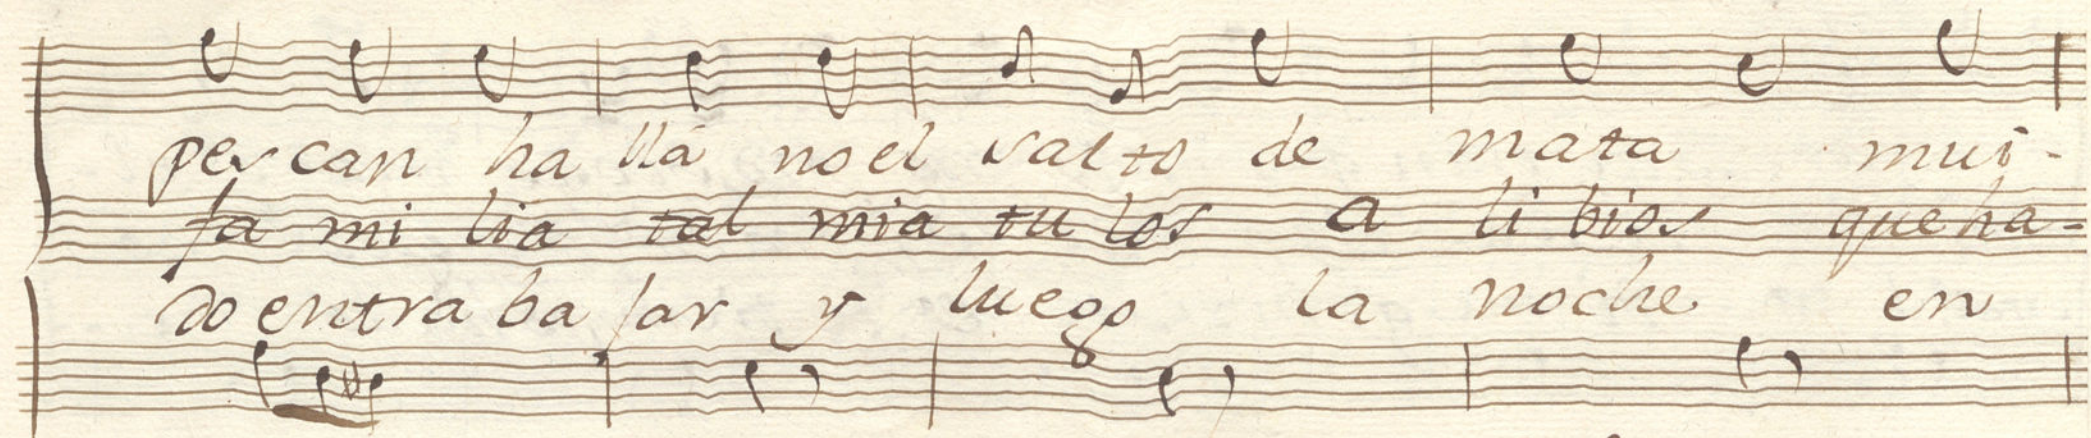 pescan ha llá no el salto de mata mui-
fa mi lia tal mia tu los a li bios que ha=
do entra ba jar y luego la noche en